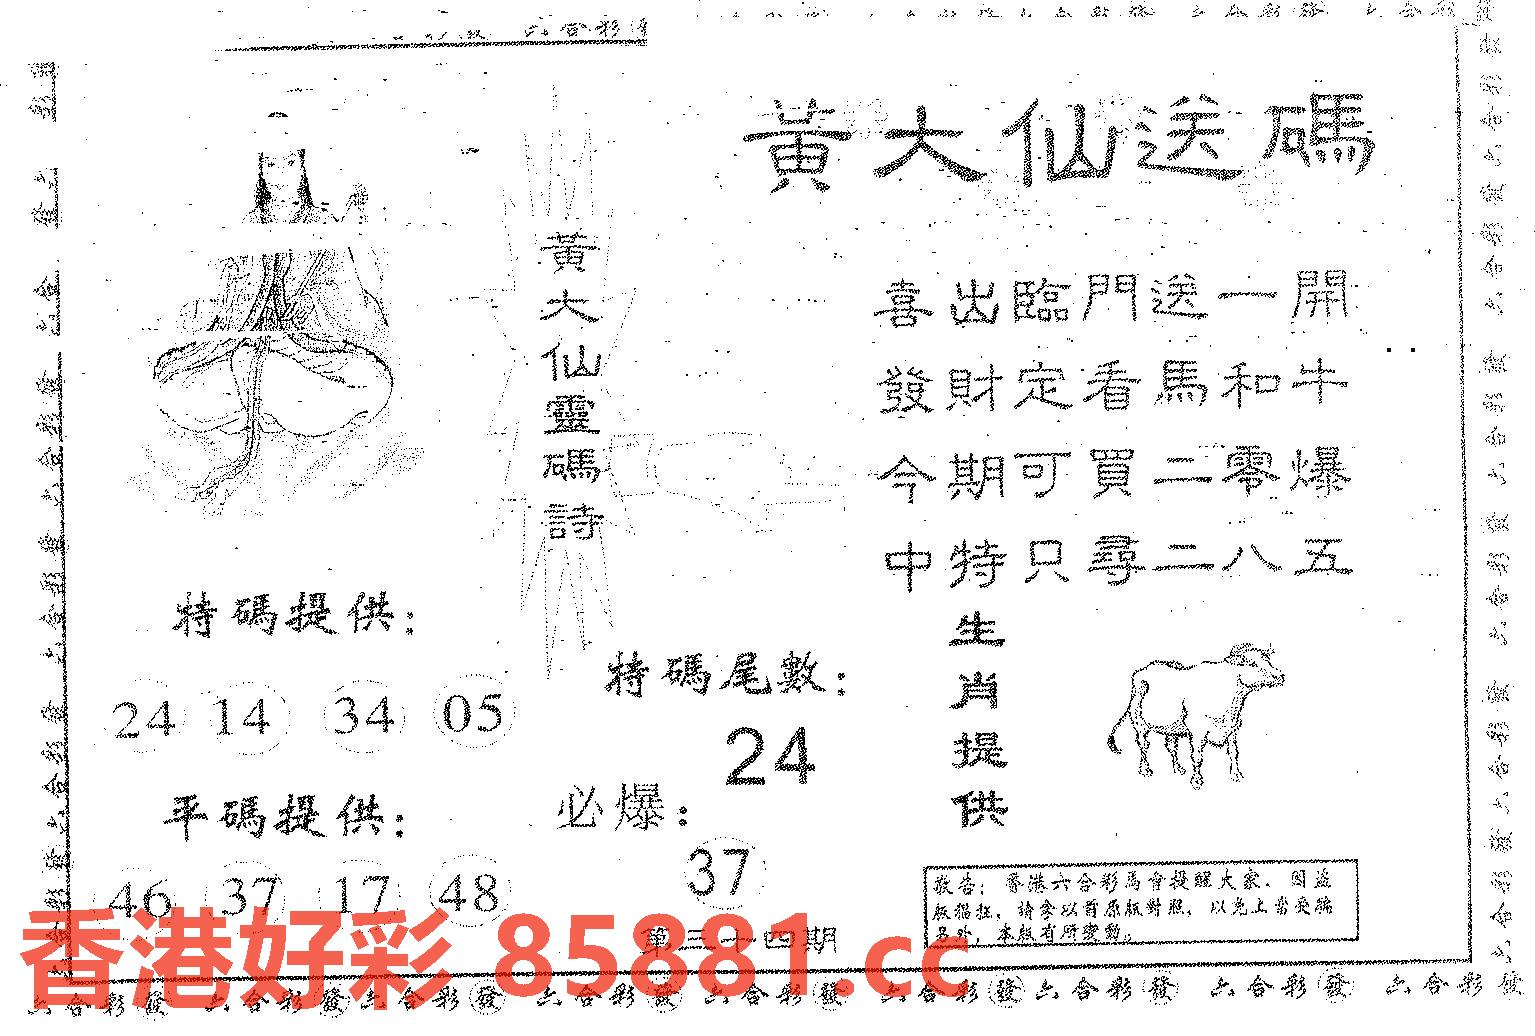 黃大仙送碼
黃大仙靈碼詩
喜出臨門送一開
發財定看馬和牛
今期可買二零爆
中特只尋二八五
特碼提供：
24 14 34 05
平碼提供：
46 37 17 48
特碼尾數：
24
必爆：
37
第三十四期
生肖提供
敬告：香港六合彩馬會提醒大家．因盜
版猖狂，請拿以前原版對照，以免上當受騙
另外，本版有所變動。
香港好彩 85881.cc
六合彩發 六合彩發 六合彩發 六合彩發 六合彩發 六合彩發 六合彩發 六合彩發 六合彩發